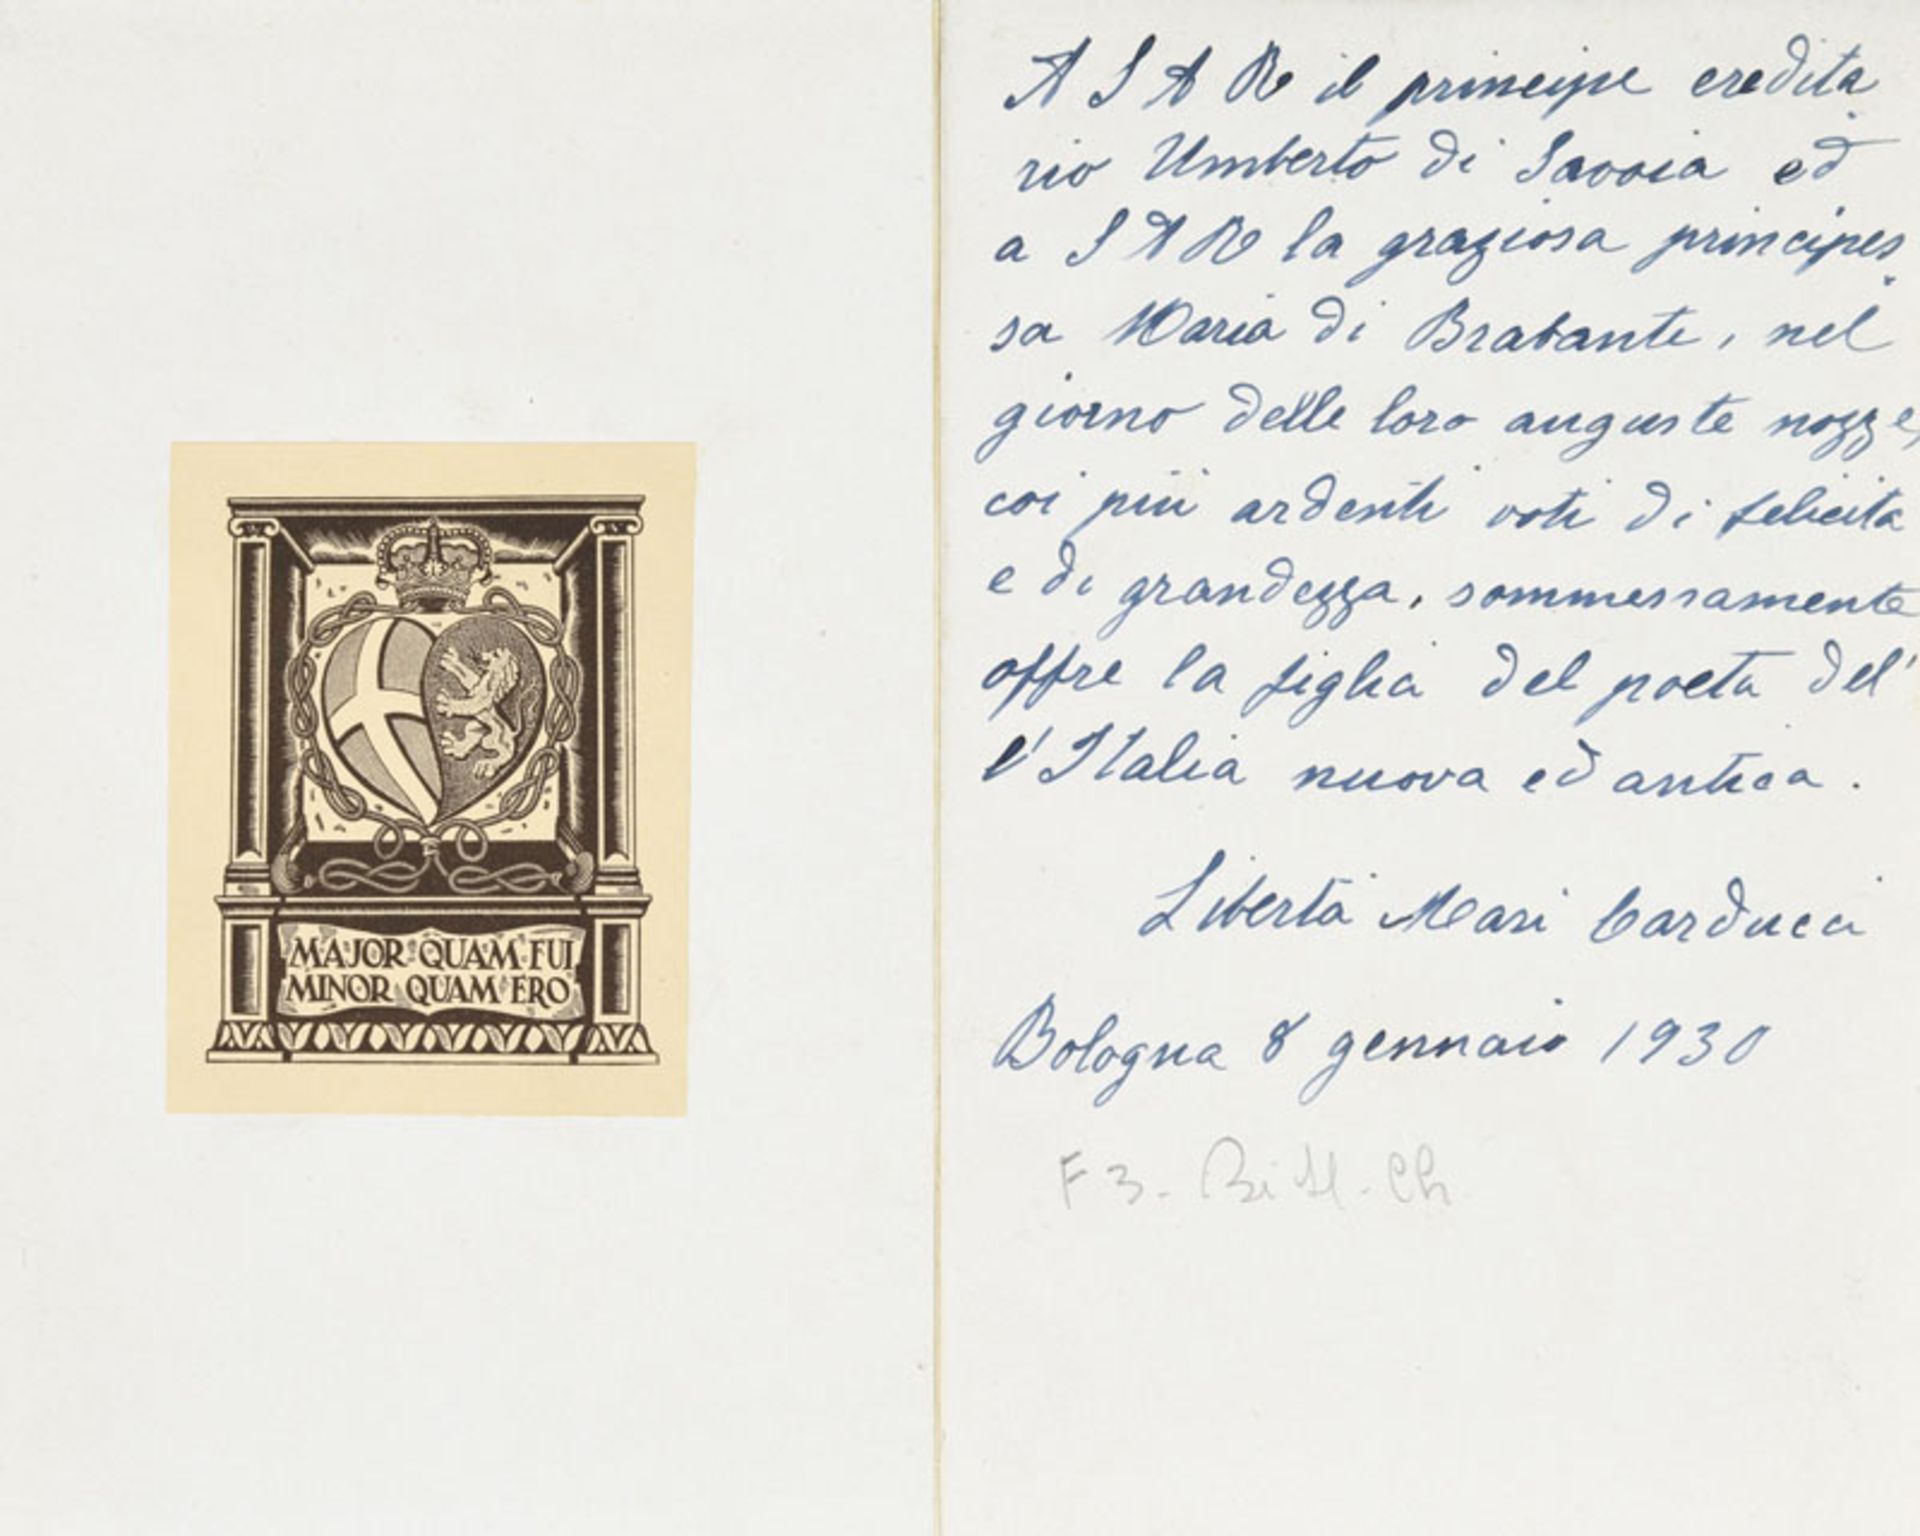 MAJOR QUAM FUI
MINOR QUAM ERO
A S A R il principe eredita
rio Umberto di Savoia ed
a S A R la graziosa principes
sa Maria di Brabante, nel
giorno delle loro auguste nozze,
coi più ardenti voti di felicita
e di grandezza, sommessamente
offre la figlia del poeta del'
l'Italia nuova ed antica.
Libertà Mari Carducci
Bologna 8 gennaio 1930
F 3.